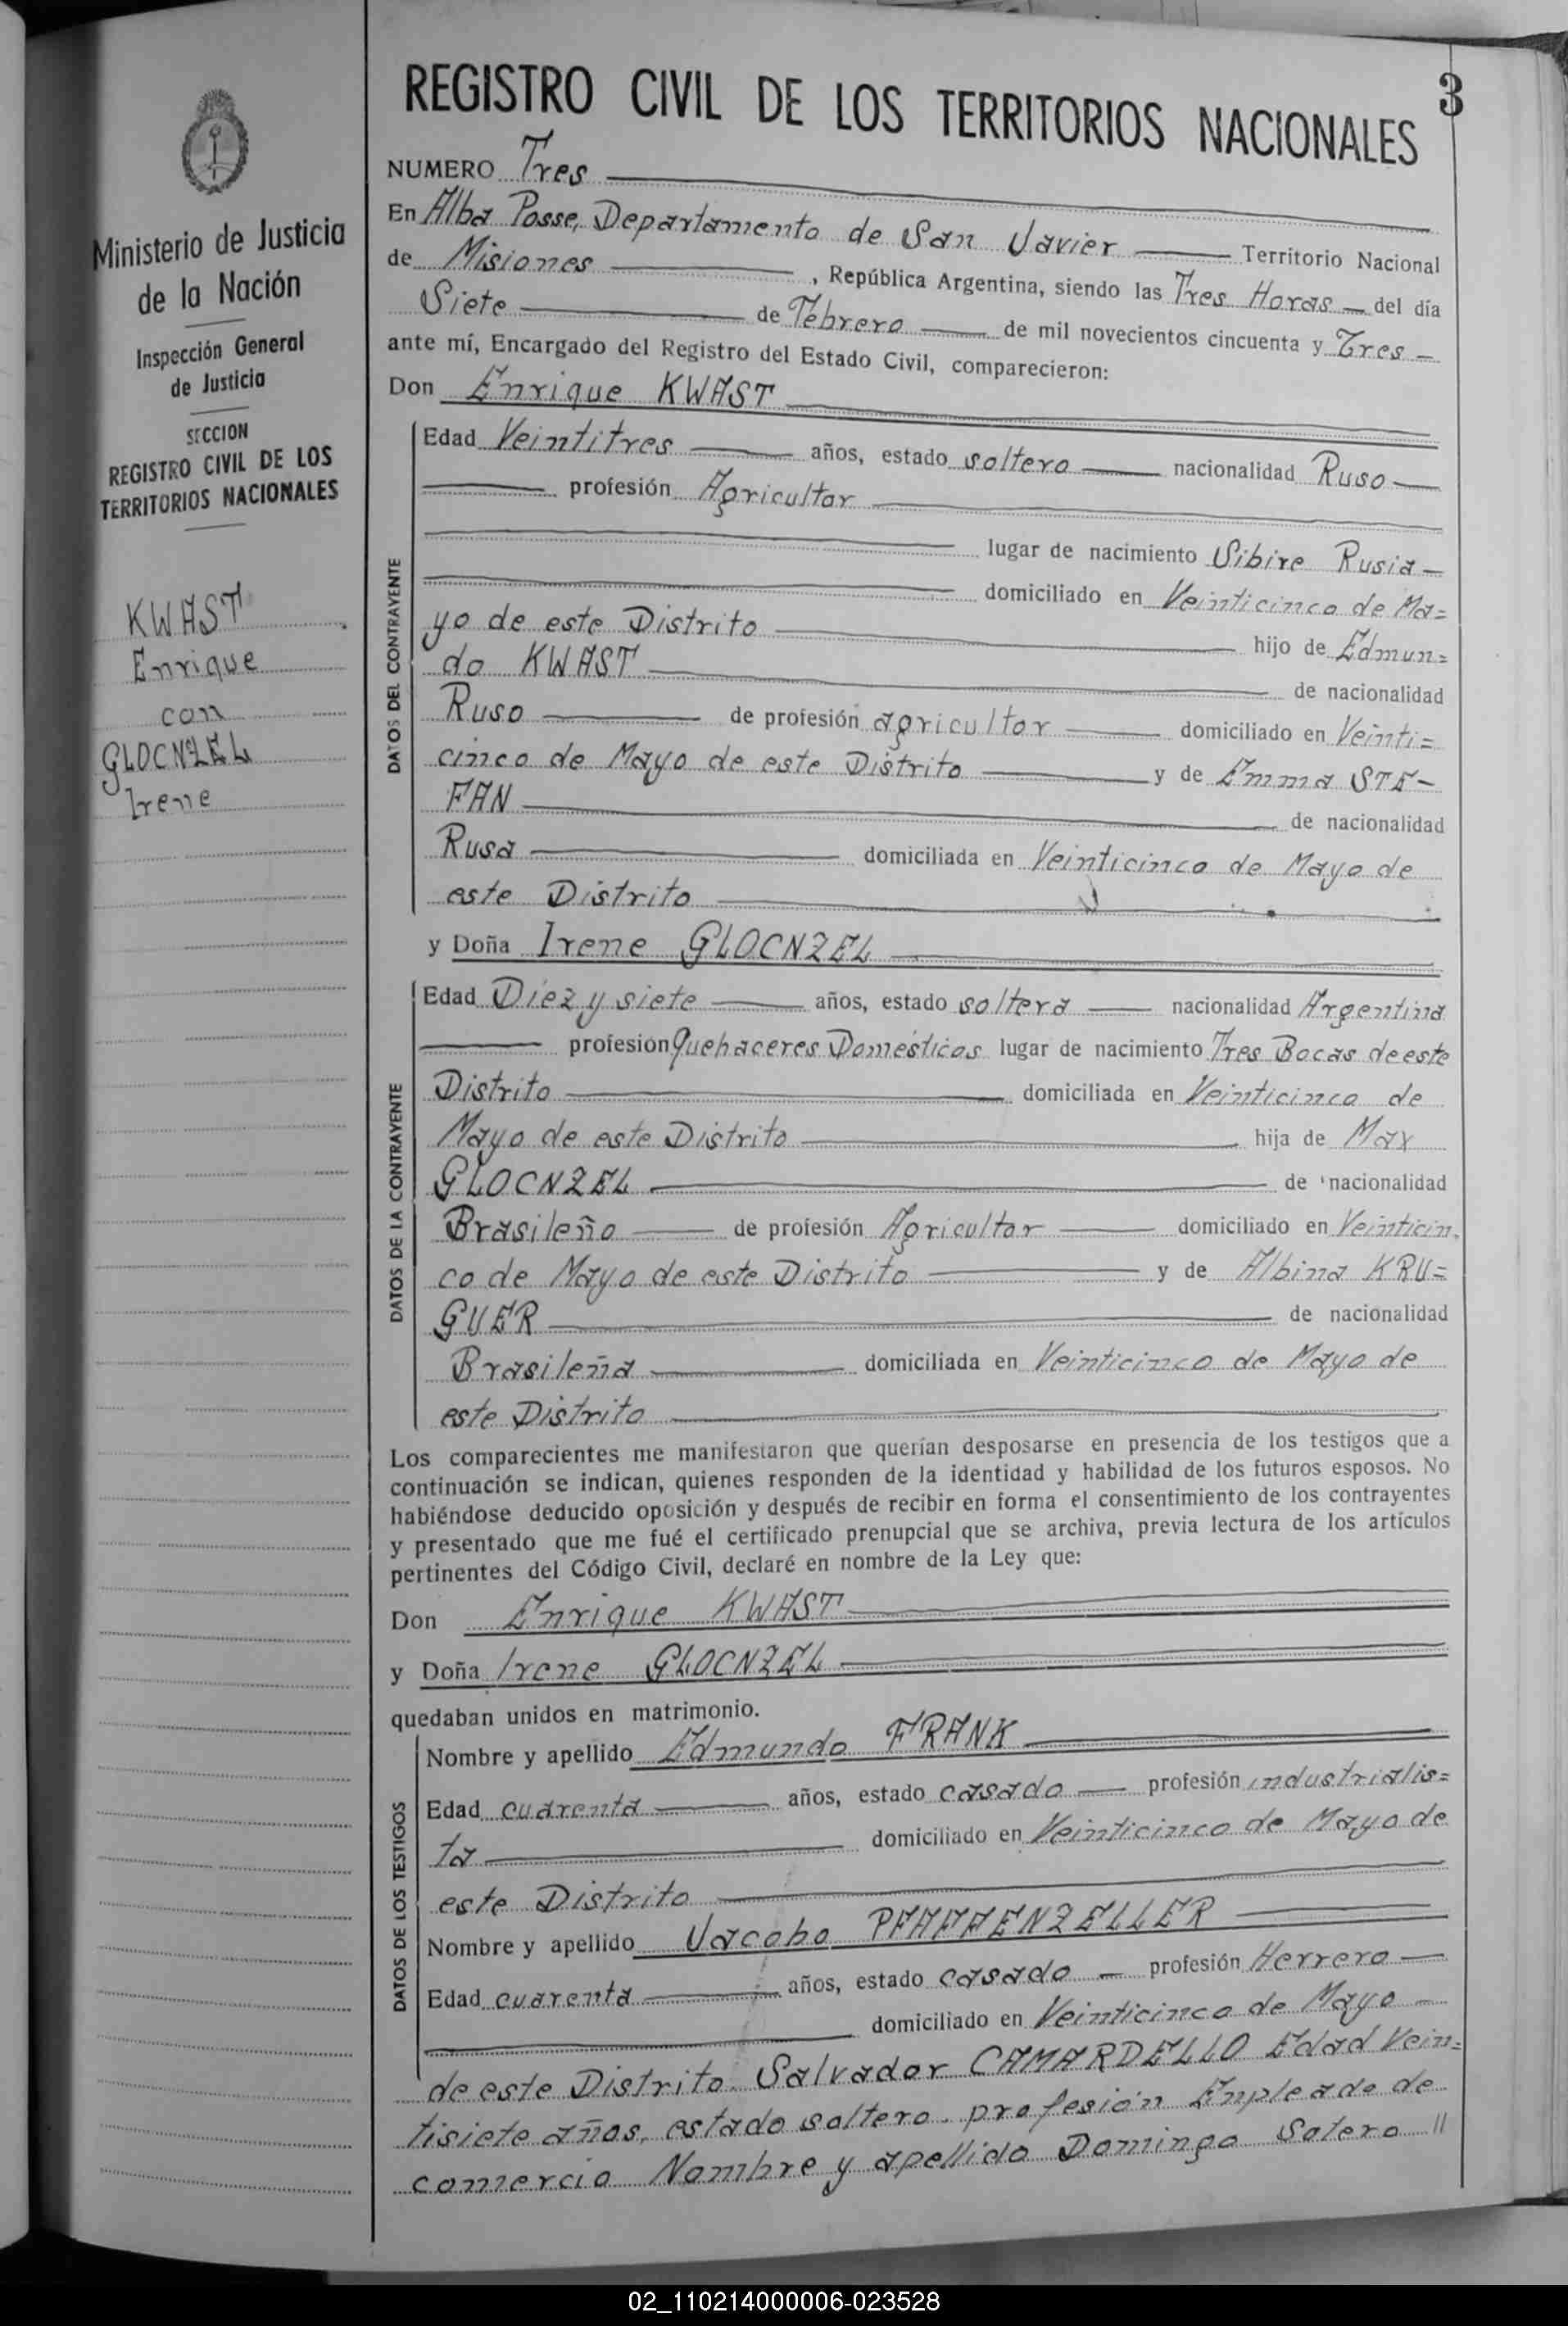 REGISTRO CIVIL DE LOS TERRITORIOS NACIONALES
3
Ministerio de Justicia
de la Nación
Inspección General
de Justicia
SECCION
REGISTRO CIVIL DE LOS
TERRITORIOS NACIONALES
KWAST
Enrique
con
GLOCNZEL
Irene
NUMERO Tres
En Alba Posse, Departamento de San Javier Territorio Nacional
de Misiones, República Argentina, siendo las Tres Horas del día
Siete de Febrero de mil novecientos cincuenta y Tres
ante mí, Encargado del Registro del Estado Civil, comparecieron:
Don Enrique KWAST
DATOS DEL CONTRAYENTE
Edad Veintitres años, estado soltero nacionalidad Ruso
profesión Agricultor
lugar de nacimiento Sibire Rusia
domiciliado en Veinticinco de Ma=
yo de este Distrito hijo de Edmun=
do KWAST de nacionalidad
Ruso de profesión agricultor domiciliado en Veinti=
cinco de Mayo de este Distrito y de Emma STE-
FAN de nacionalidad
Rusa domiciliada en Veinticinco de Mayo de
este Distrito
y Doña Irene GLOCNZEL
DATOS DE LA CONTRAYENTE
Edad Diez y siete años, estado soltera nacionalidad Argentina
profesión Quehaceres Domésticos lugar de nacimiento Tres Bocas de este
Distrito domiciliada en Veinticinco de
Mayo de este Distrito hija de Max
GLOCNZEL de nacionalidad
Brasileño de profesión Agricultor domiciliado en Veinticin,
co de Mayo de este Distrito y de Albina KRU=
GUER de nacionalidad
Brasileña domiciliada en Veinticinco de Mayo de
este Distrito
Los comparecientes me manifestaron que querían desposarse en presencia de los testigos que a
continuación se indican, quienes responden de la identidad y habilidad de los futuros esposos. No
habiéndose deducido oposición y después de recibir en forma el consentimiento de los contrayentes
y presentado que me fué el certificado prenupcial que se archiva, previa lectura de los artículos
pertinentes del Código Civil, declaré en nombre de la Ley que:
Don Enrique KWAST
y Doña Irene GLOCNZEL
quedaban unidos en matrimonio.
DATOS DE LOS TESTIGOS
Nombre y apellido Edmundo FRANK
Edad cuarenta años, estado casado profesión industrialis=
ta domiciliado en Veinticinco de Mayo de
este Distrito
Nombre y apellido Jacobo PFAFFENZELLER
Edad cuarenta años, estado casado profesión Herrero
domiciliado en Veinticinco de Mayo
de este Distrito. Salvador CAMARDELLO Edad Vein=
tisiete años, estado soltero. profesión Empleado de
comercio Nombre y apellido Domingo Sotero "
02_110214000006-023528